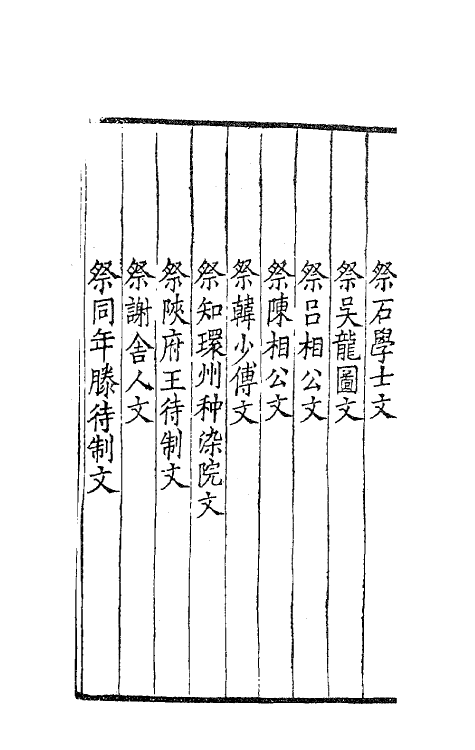 祭石學士文
祭吴龍圖文
祭吕相公文
祭陳相公文
祭韓少傅文
祭知環州种染院文
祭陝府王待制文
祭謝舍人文
祭同年滕待制文